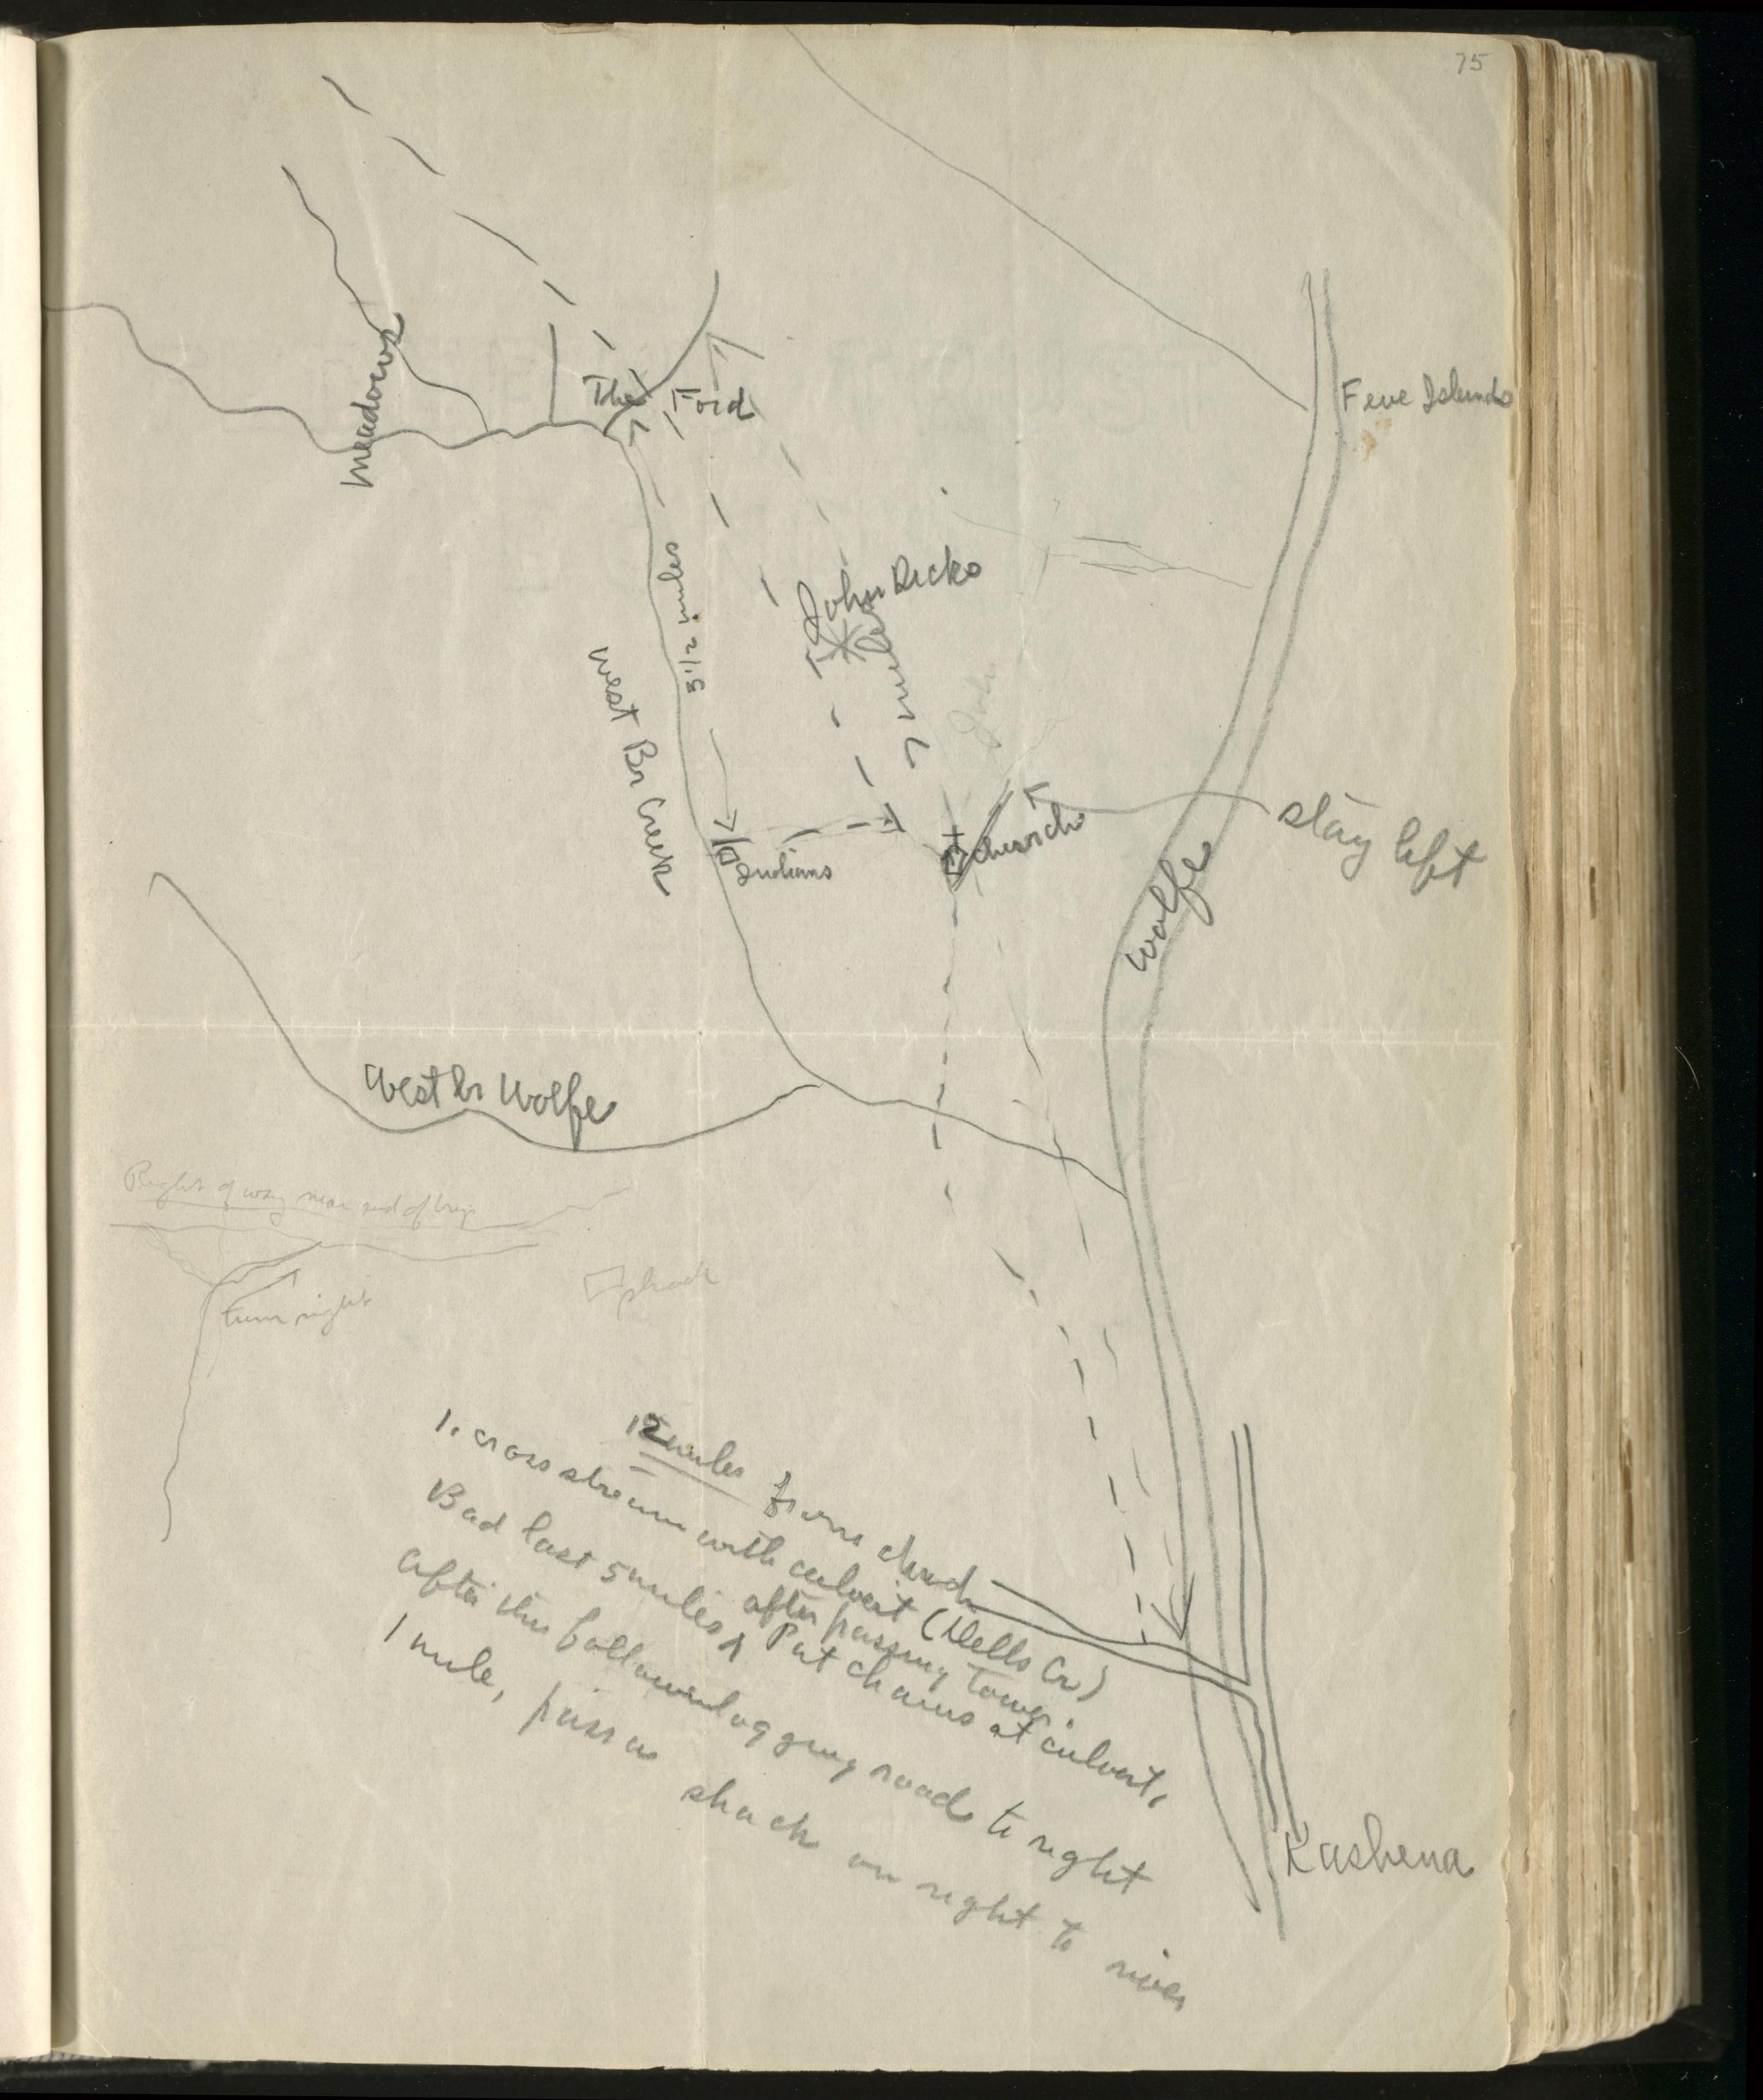 75
Meadows
The Ford
Feve Islands
5 1/2 miles
John Dicks
7 miles
West Br Creek
Indians
church
stay left
Wolfe
West br Wolfe
Right of way near end of
turn right
shack
12 miles from church
1. cross stream with culvert (Dells Cr)
after passing tower.
Bad last 5 miles ^ Put chains at culvert,
After this follow logging road to right
1 mile, pass shack on right to river
Kashena